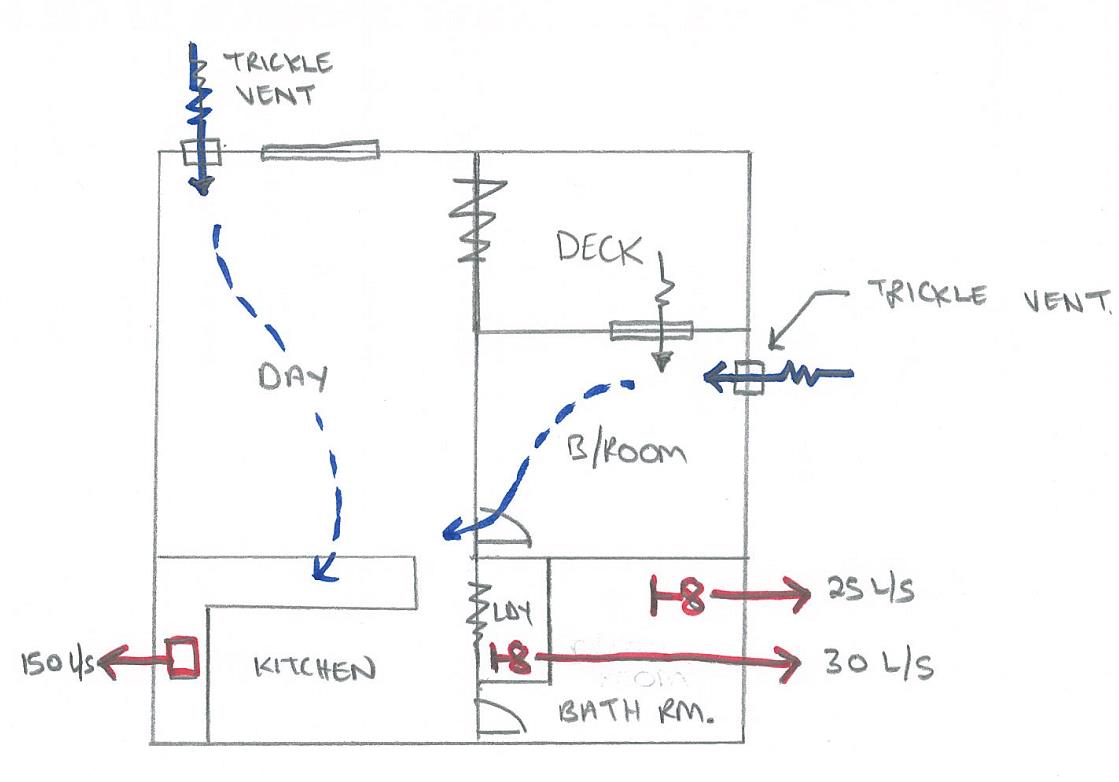 TRICKLE
VENT
DECK
TRICKLE VENT.
DAY
B/ROOM
25 L/S
LDY
150 L/S
KITCHEN
30 L/S
BATH RM.